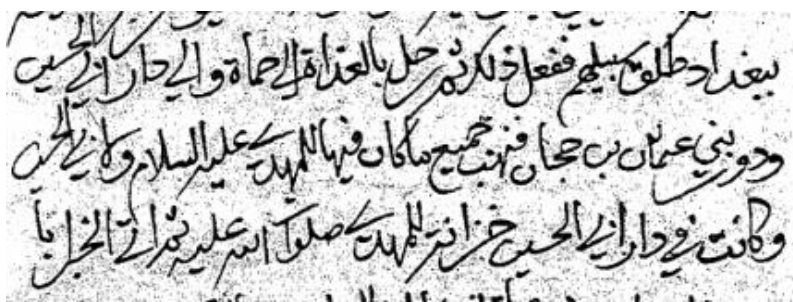 ببغداد طلق سبيلهم ففعل ذلك ثم رحل بالغداة الى حماة والى دار ابي الحسين
ودور بني عمار بن حجار فنهب جميع ما كان فيها للمهدي عليه السلام وكان ابي الحسين
وكانت في دار ابي الحسين خزانة للمهدي صلوات الله عليه ثم اتى الخبر با